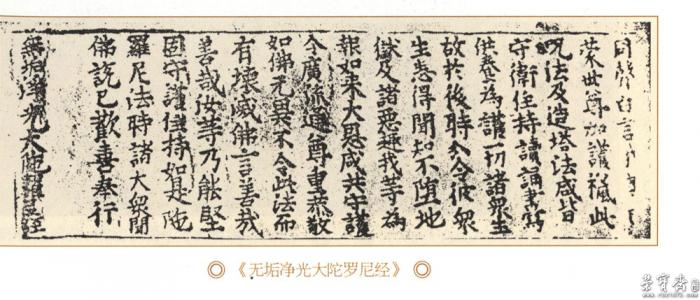 同聲白言
蒙世尊加護此
呪法及造塔法咸皆
守衛住持讀誦書寫
供養為護一切諸衆生
故於後時分令彼衆
生悉得聞知不墮地
獄及諸惡趣我等為
報如来大恩咸共守護
令廣流通尊重恭敬
如佛无異不令此法而
有壞滅佛言善哉
善哉汝等乃能堅
固守護住持如是陁
羅尼法時諸大衆聞
佛說已歡喜奉行
無垢淨光大陁羅尼經
◎《无垢净光大陀罗尼经》◎